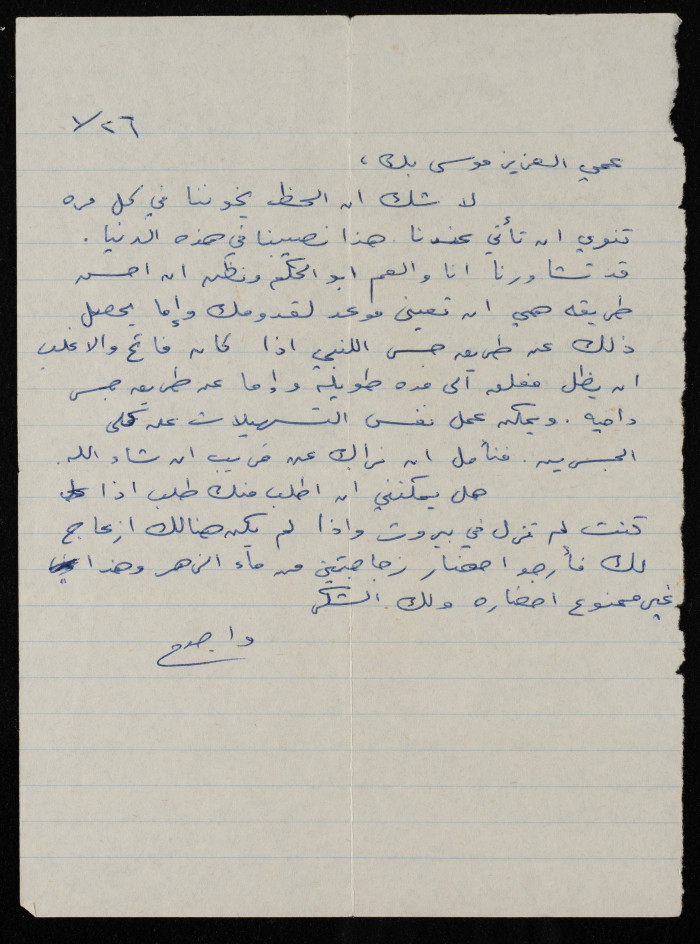 ٧/٢٦
عمي العزيز موسى بك ،
لا شك ان الحظ يخوننا في كل مره
تنوي ان تأتي عندنا. هذا نصيبنا في هذه الدنيا.
قد تشاورنا انا والعم ابو الحكم ونظن ان احسن
طريقه هي ان تعيني موعد لقدومك وإما يحصل
ذلك عن طريق جسر اللنبي اذا كان فاتح والاغلب
ان يظل مغلق الى مده طويلة وإما عن طريق جسر
داميه. ويمكن عمل نفس التسهيلات على
الجسرين. فنأمل ان نراك عن قريب ان شاء الله.
هل يمكنني ان اطلب منك طلب اذا
كنت لم تنزل في بيروت واذا لم يكن هنالك ازعاج
لك فأرجو احضار زجاجتين من ماء الزهر وهذا
غير ممنوع احضاره ولك الشكر